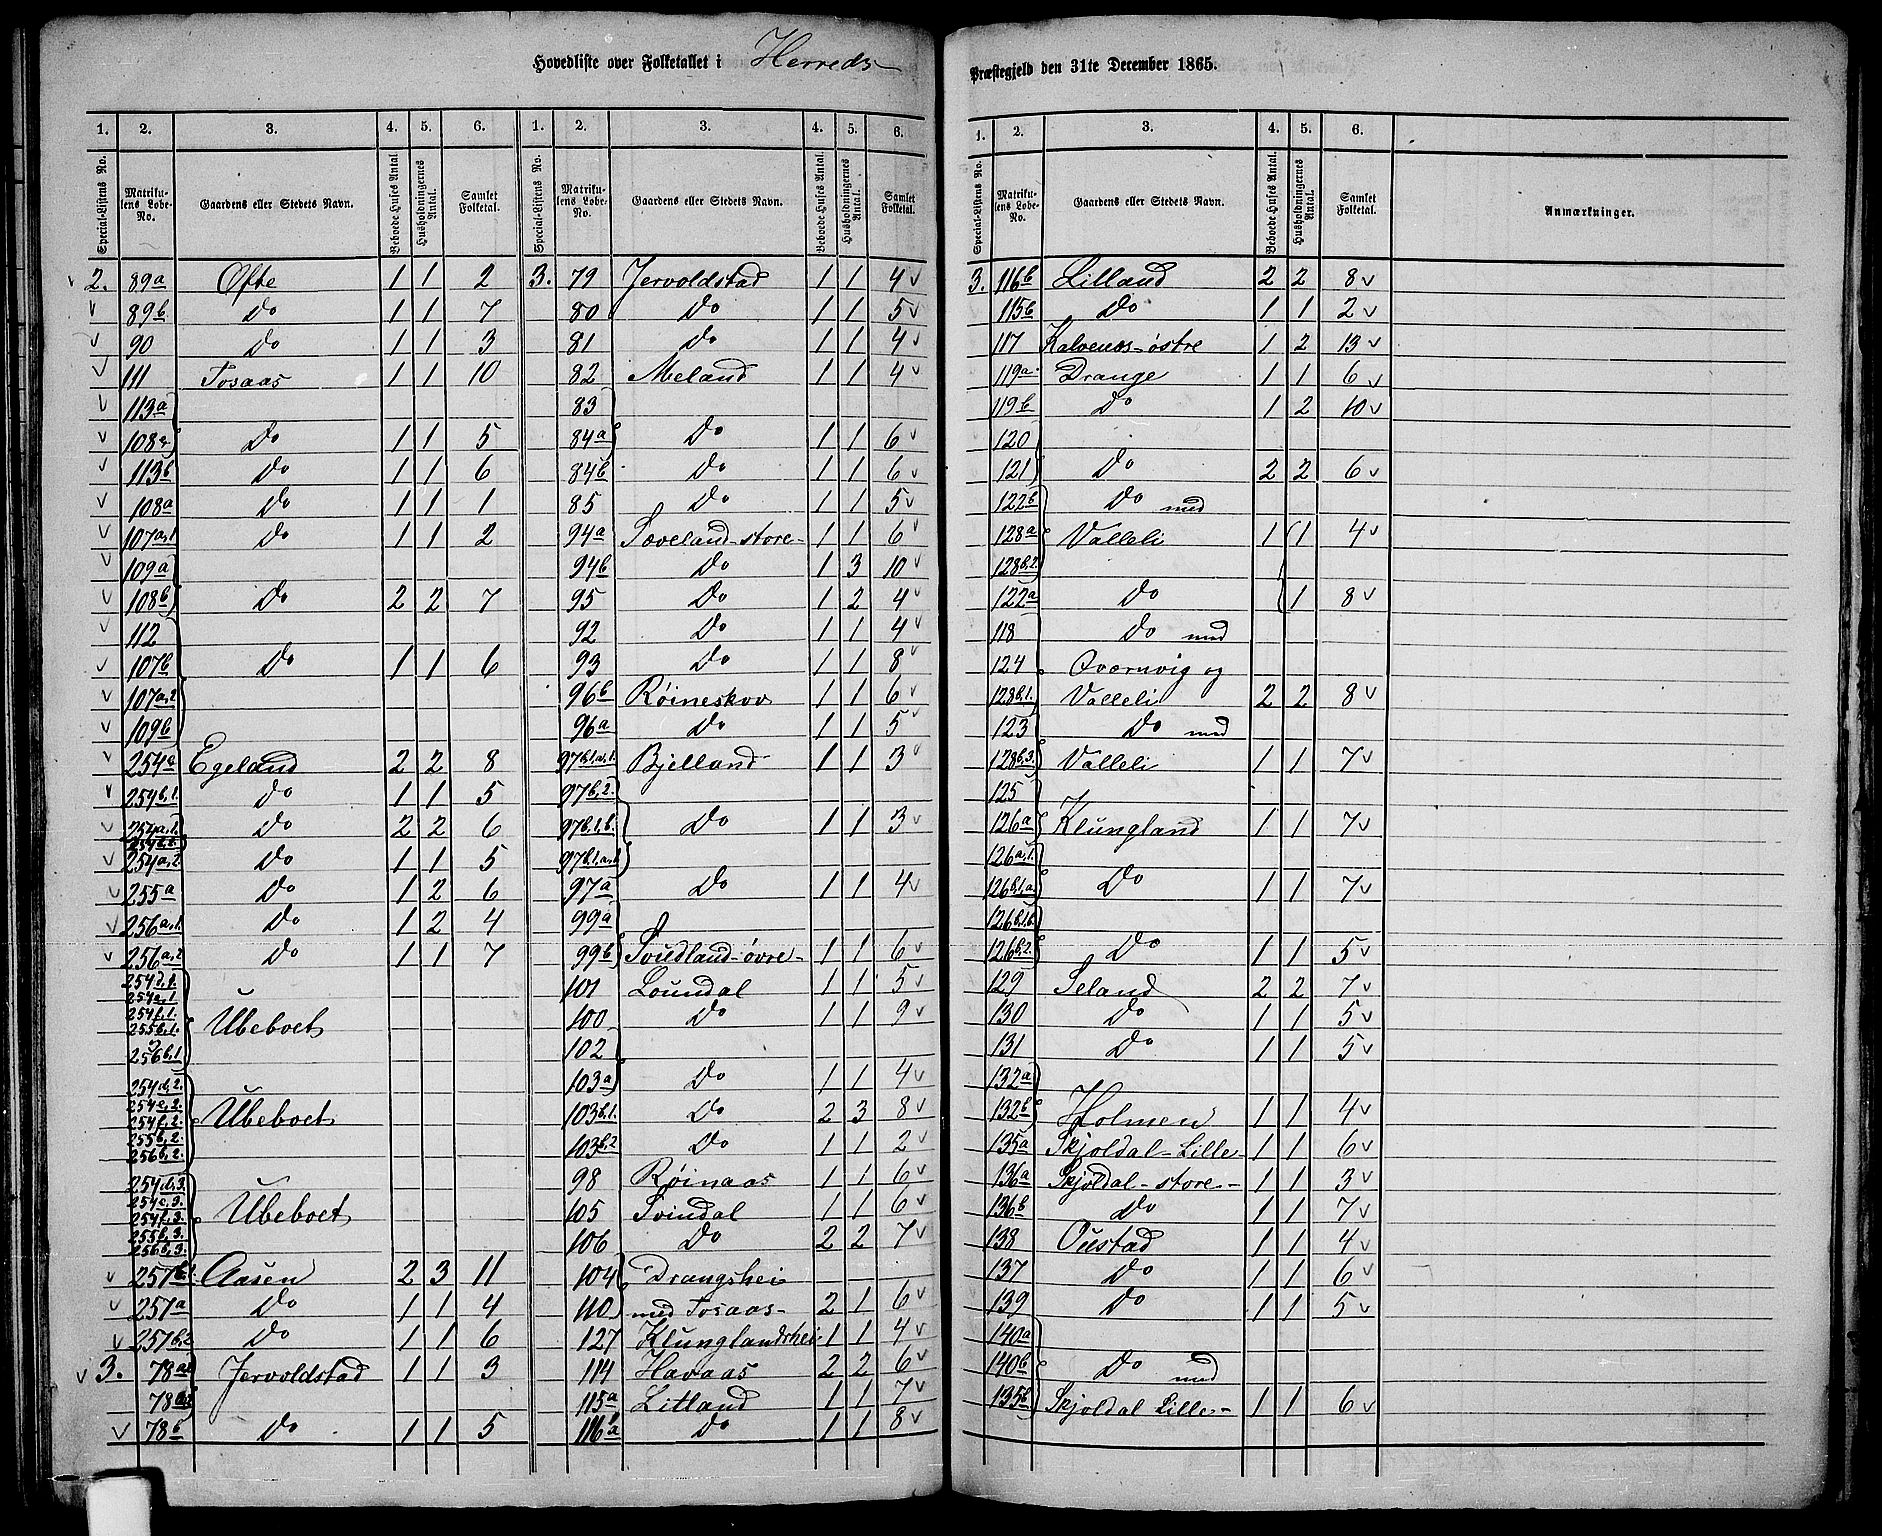 Hovedliste over Folketallet i Herreds
Præstegjeld den 31te December 1865.
1. 2. 3. 4. 5. 6. 1. 2. 3. 4. 5. 6.
Special-Listens No. Matrikulens Løbe-No. Gaardens eller Stedets Navn. Beboede Huses Antal. Husholdningernes Antal. Samlet Folketal. Special-Listens No. Matrikulens Løbe-No. Gaardens eller Stedets Navn. Beboede Huses Antal. Husholdningernes Antal. Samlet Folketal.
2. 89a Øfte 1 1 2
89b Do 1 1 7
90 Do 1 1 3
111 Tosaas 1 1 10
113a
108c Do 1 1 5
113b Do 1 1 6
108a Do 1 1 1
107a,1 Do 1 1 2
109a
108b Do 2 2 7
112
107b Do 1 1 6
107a,2
109b
254c Egeland 2 2 8
254b,1. Do 1 1 5
254a,1. Do 2 2 6
254b,2.
254a,2. Do 1 1 5
255a Do 1 2 6
256a,1. Do 1 2 4
256a,2 Do 1 1 7
254d,1.
254e,1.
254f,1. Ubeboet
255b,1.
256b,1
254d,2.
254e,2.
254f,2. Ubeboet
255b,2.
256b,2.
254d,3.
254e,3.
254f,3. Ubeboet
255b,3.
256b,3.
257b,1. Aasen 2 3 11
257a Do 1 1 4
257b,2 Do 1 1 6
3. 78a1 Jervoldstad 1 1 3
78a2
78b Do 1 1 5
3. 79 Jervoldstad 1 1 4
80 Do 1 1 5
81 Do 1 1 4
82 Meland 1 1 4
83
84a Do 1 1 6
84b Do 1 1 6
85 Do 1 1 5
94a Sæveland-store- 1 1 6
94b Do 1 3 10
95 Do 1 2 4
92 Do 1 1 4
93 Do 1 1 8
96b Røineskov 1 1 6
96a Do 1 1 5
97b,1,a,1. Bjelland 1 1 3
97b,2.
97b,1,b. Do 1 1 3
97b,1,a,
97a Do 1 1 4
99a
99b Svudland-øvre- 1 1 6
101 Loundal 1 1 5
100 Do 1 1 9
102
103a Do 1 1 4
103b,1. Do 2 3 8
103b,2 Do 1 1 2
98 Røinaas 1 1 6
105 Svindal 1 1 6
106 Do 2 2 7
104 Drangshei
110 med Tosaas- 2 1 6
127 Klunglandshei 1 1 4
114 Havaas 2 2 6
115a Litland 1 1 7
116a Do 1 1 8
1. 2. 3. 4. 5. 6.
Special-Listens No. Matrikulens Løbe-No. Gaardens eller Stedets Navn. Beboede Huses Antal. Husholdningernes Antal. Samlet Folketal. Anmærkninger.
3. 116b Lilland 2 2 8
115b Do 1 1 2
117 Kalvenes-østre 1 2 13
119a Drange 1 1 6
119b Do 1 2 10
120
121 Do 2 2 6
122b Do med
128a Valleli 1 1 4
128b,2
122a Do 1 8
118 Do med
124 Qvarnvig og
128b,1. Valleli 2 2 8
123 Do med
128b,3. Valleli 1 1 7
125
126a Klungland 1 1 7
126a,1.
126b,1,a Do 1 1 7
126b,1,b.
126b,2. Do 1 1 5
129 Seland 2 2 7
130 Do 1 1 5
131 Do 1 1 5
132a
132b Holmen 1 1 4
135a Skjoldal-Lille- 1 1 6
136a Skjoldal-store- 1 1 3
136b Do 1 1 7
138 Oustad 1 1 4
137 Do 1 1 6
139 Do 1 1 5
140a
140b Do med
135b Skjoldal Lille- 1 1 6